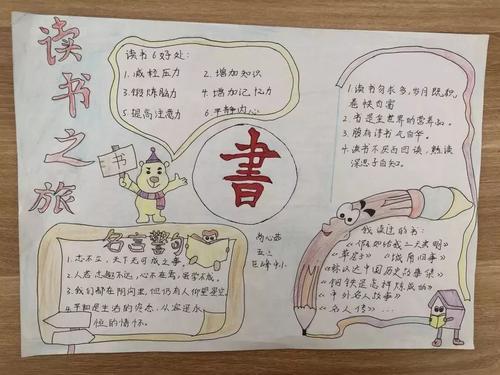 读书之旅
读书6好处：
1.减轻压力
2.增加知识
3.锻炼脑力
4.增加记忆力
5.提高注意力
6.平静内心
书
書
1.读书勿求多，岁月既积，
卷帙自富
2.书是全世界的营养品。
3.腹有诗书气自华。
4.读书不厌百回读，熟读
深思子自知。
名言警句
1.志不立，天下无可成之事。
2.人若志趣不远，心不在焉，虽学不成。
3.我们都在阴沟里，但仍有人仰望星空
4.平和是生活的姿态，从容是永
恒的情怀。
五二
巨峰中小
我读过的书：
《假如给我三天光明》
《草房子》
《城南旧事》
《钢铁是怎样炼成的》
《中外名人故事》
《名人传》…